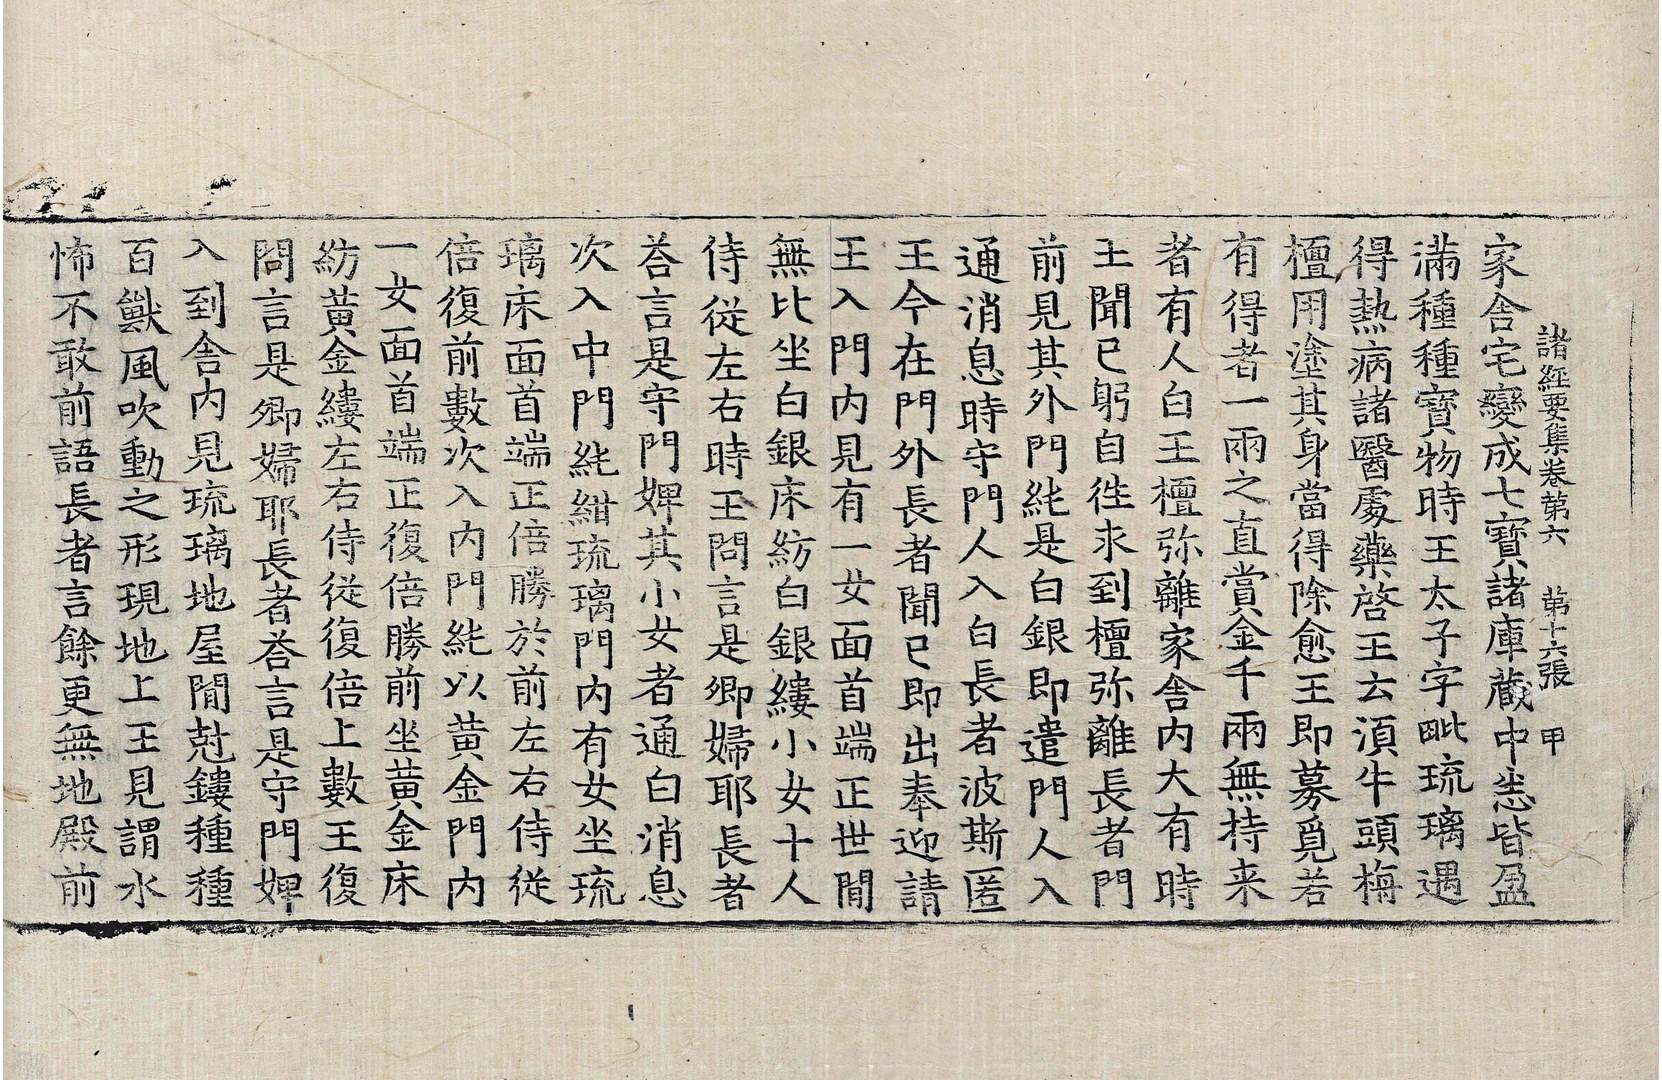 諸經要集卷第六　第十六張　甲
家舍宅變成七寶諸庫藏中悉皆盈
滿種種寶物時王太子字毗琉璃遇
得熱病諸醫處藥啓王云湏牛頭栴
檀用塗其身當得除愈王即募覓若
有得者一兩之直賞金千兩無持来
者有人白王檀弥離家舍內大有時
王聞已躬自徃求到檀弥離長者門
前見其外門純是白銀即遣門人入
通消息時守門人入白長者波斯匿
王今在門外長者聞已即出奉迎請
王入門內見有一女面首端正世閒
無比坐白銀床紡白銀縷小女十人
侍從左右時王問言是卿婦耶長者
荅言是守門婢其小女者通白消息
次入中門純紺琉璃門內有女坐琉
璃床面首端正倍勝於前左右侍從
倍復前數次入內門純以黃金門內
一女面首端正復倍勝前坐黃金床
紡黃金縷左右侍從復倍上數王復
問言是卿婦耶長者荅言是守門婢
入到舍內見琉璃地屋閒剋鏤種種
百獸風吹動之形現地上王見謂水
怖不敢前語長者言餘更無地殿前